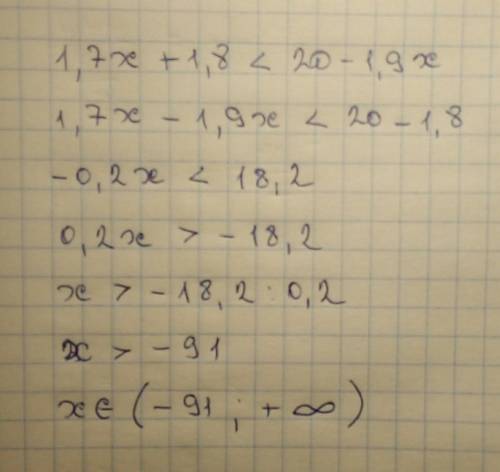 1,7x + 1,8 < 20 - 1,9x
1,7x - 1,9x < 20 - 1,8
-0,2x < 18,2
0,2x > -18,2
x > -18,2 : 0,2
x > -91
x ∈ (-91 ; +∞)